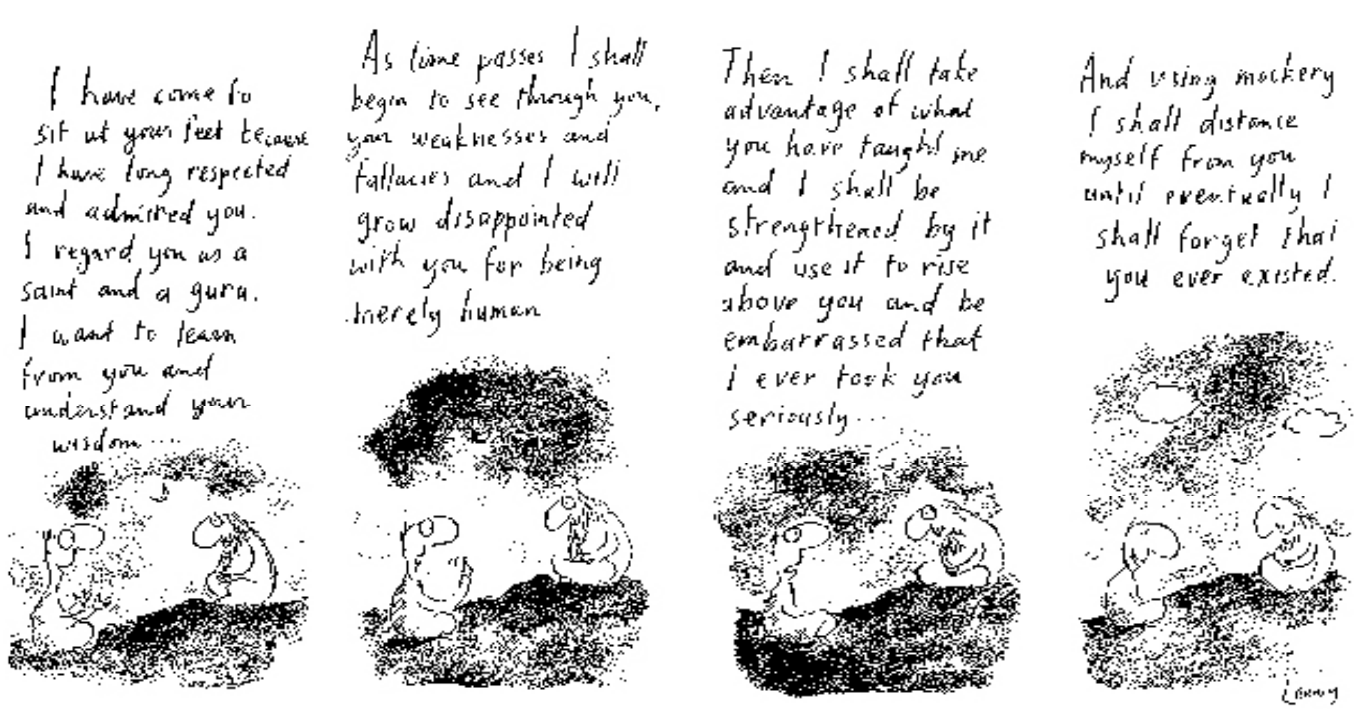 I have come to
sit at your feet because
I have long respected
and admired you.
I regard you as a
saint and a guru.
I want to learn
from you and
understand your
wisdom....
As time passes I shall
begin to see through you,
your weaknesses and
fallacies and I will
grow disappointed
with you for being
merely human
Then I shall take
advantage of what
you have taught me
and I shall be
strengthened by it
and use it to rise
above you and be
embarrassed that
I ever took you
seriously...
And using mockery
I shall distance
myself from you
until eventually I
shall forget that
you ever existed.
Leunig